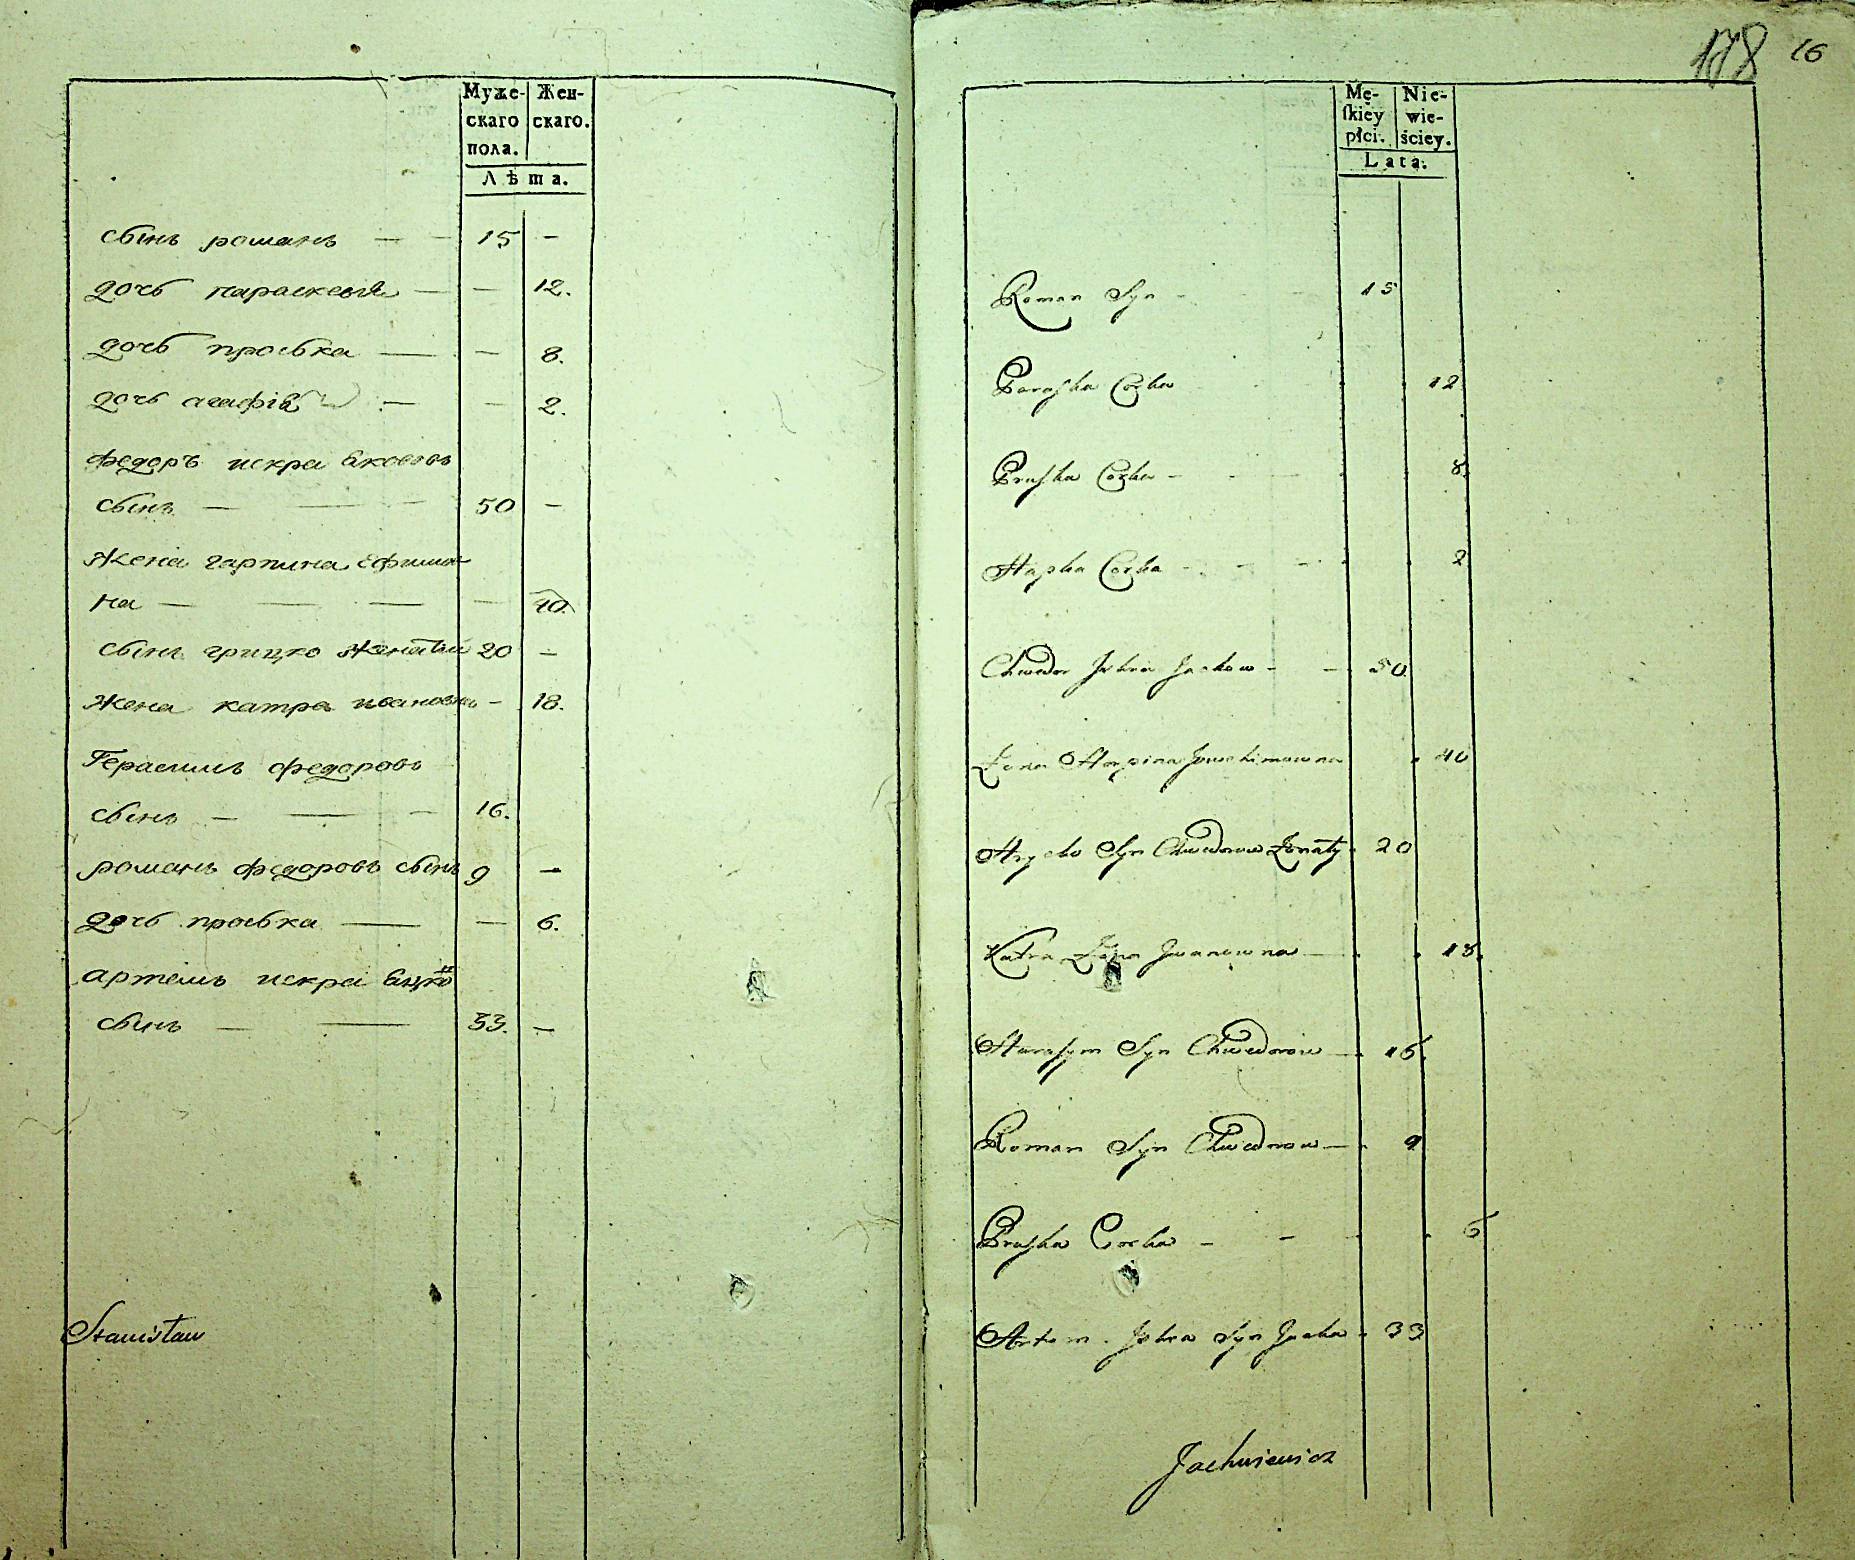 Муже-
скаго
пола.
Жен-
скаго.
Лѣта.
сынъ романъ — — 15 —
дочь параскевія — — 12.
дочь проська — — 8.
дочь агафія — — 2.
Федоръ искра яковъ
сынъ — — — 50 —
Жена гарпина Ефимов
на — — — — 40.
сынъ грицко женатый 20 —
Жена катра ивановна — 18.
Герасимъ федоровъ
сынъ — — — 16.
романъ федоровъ сынъ 9 —
дочь проська — — 6.
артемъ искра яцковъ
сынъ — — 33. —
Stanisław
178 16
Mę-
skiéy
płci.
Nie-
wie-
ściey.
Lata.
Roman Syn - - 15
Paraska Corka 12
Pruska Corka - - - 8.
Hapka Corka - - - 2
Chwedor Iskra Jackow - - 50.
Żona Harpina Jowchimowna 40
Hrycko Syn Chwedorow Żonaty 20
Katra Żona Jwanowna — 18.
Harasym Syn Chwedorow — 16.
Roman Syn Chwedorow — 9
Pruska Corka - - - 6
Artem Iskra Syn Jacka 33
Jachniewicz